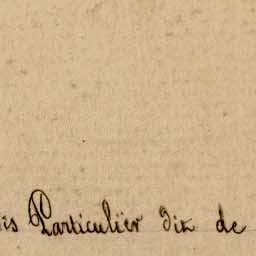 is Particulier dit de